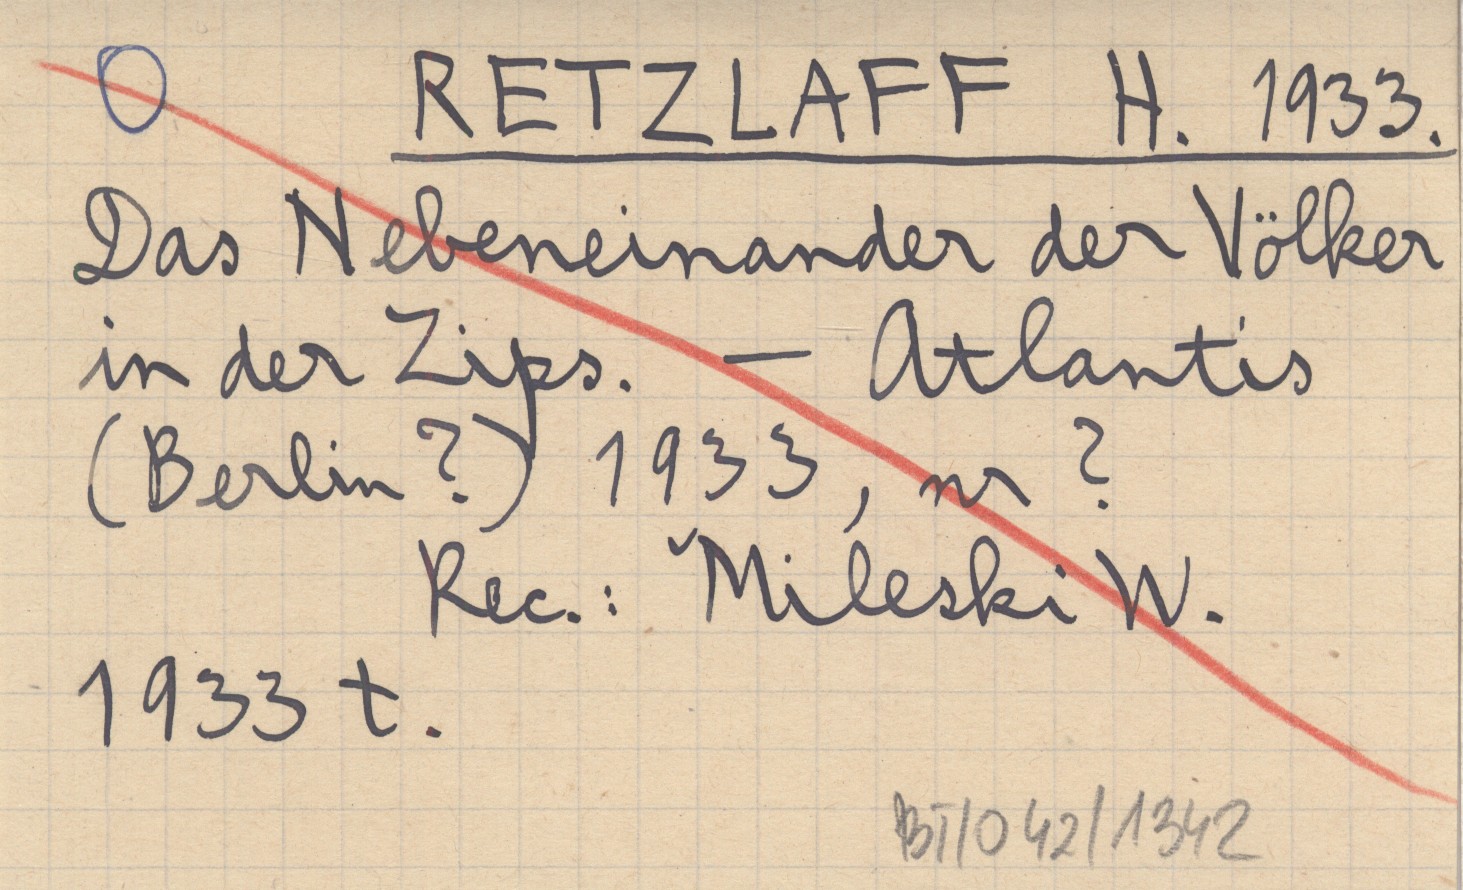 O RETZLAFF H. 1933.
Das Nebeneinander der Völker
in der Zips. — Atlantis
(Berlin?) 1933, nr ?
Rec.: Mileski W.
1933 t.
BT/O 42/1342